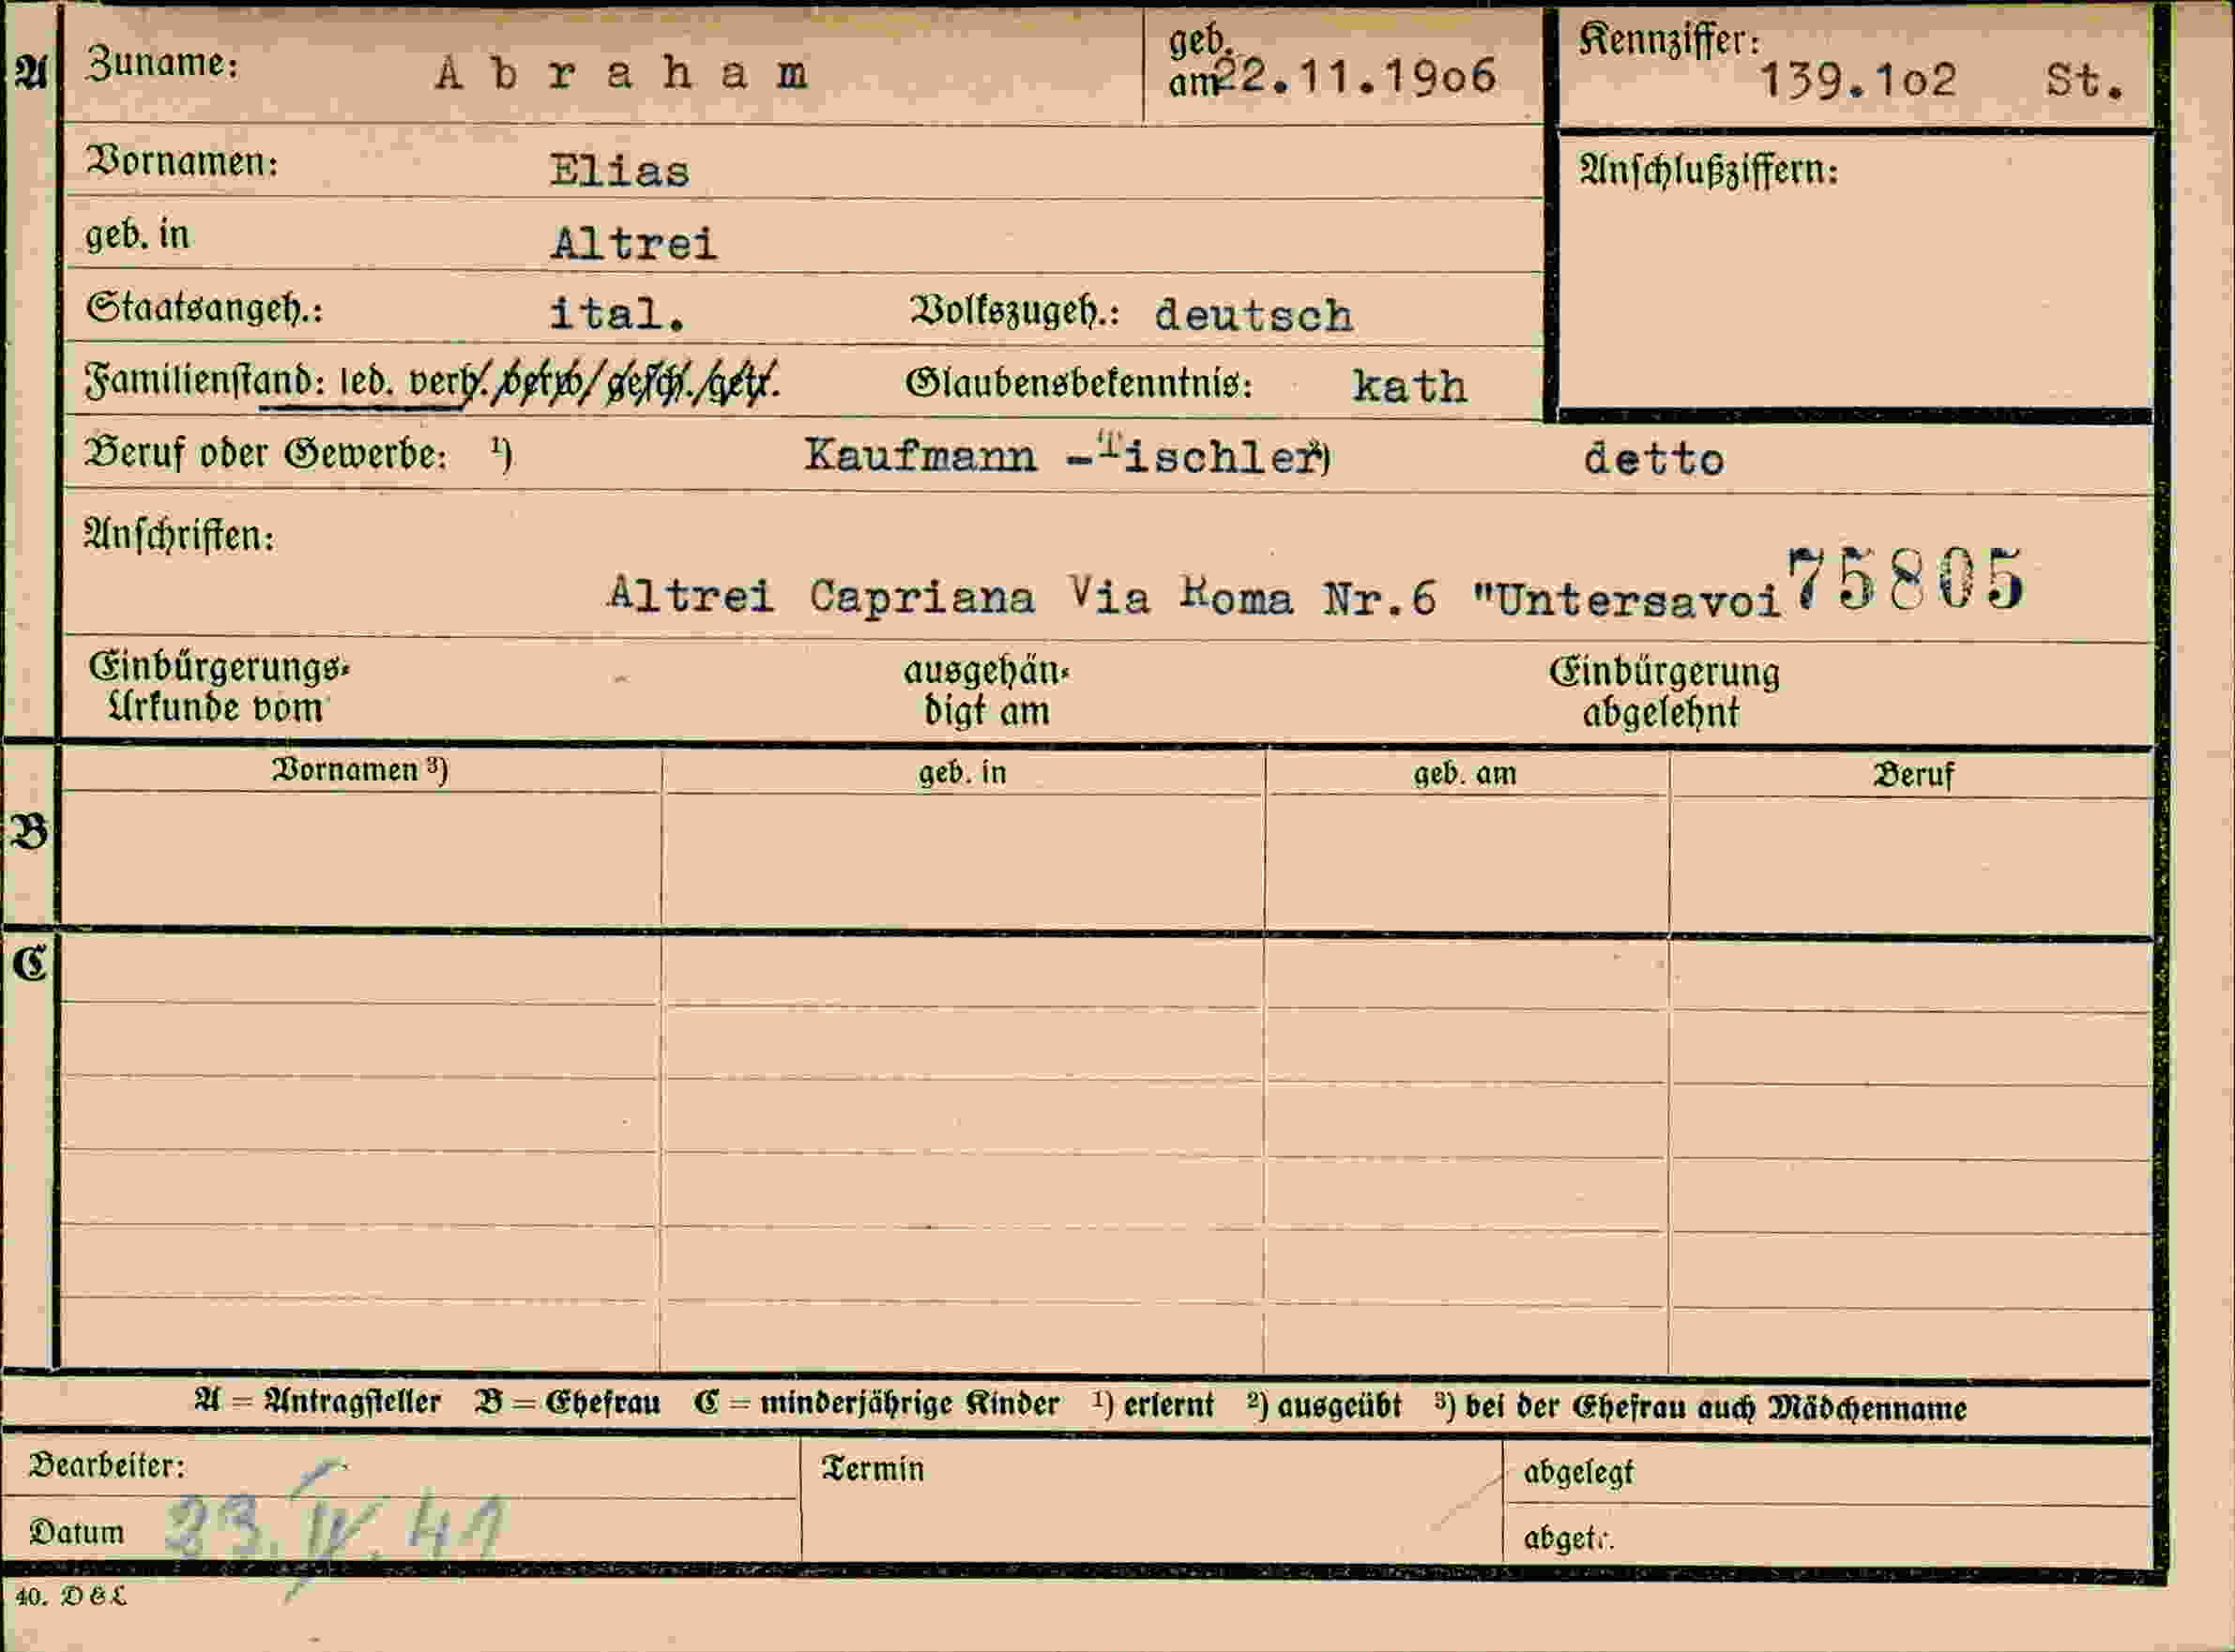 A Zuname: Abraham geb. am 22.11.1906 Kennziffer: 139.102 St.
Vornamen: Elias Anschlußziffern:
geb. in Altrei
Staatsangeh.: ital. Volkszugeh.: deutsch
Familienstand: led. verh. verw. gesch. getr. Glaubensbekenntnis: kath
Beruf oder Gewerbe: ¹) Kaufmann -Tischler ²) detto
Anschriften:
Altrei Capriana Via Roma Nr.6 "Untersavoi 75805
Einbürgerungs- ausgehän- Einbürgerung
Urkunde vom digt am abgelehnt
Vornamen ³) geb. in geb. am Beruf
B
C
A = Antragsteller B = Ehefrau C = minderjährige Kinder ¹) erlernt ²) ausgeübt ³) bei der Ehefrau auch Mädchenname
Bearbeiter: Termin abgelegt
Datum 23. IV. 41 abget.:
40. D & L